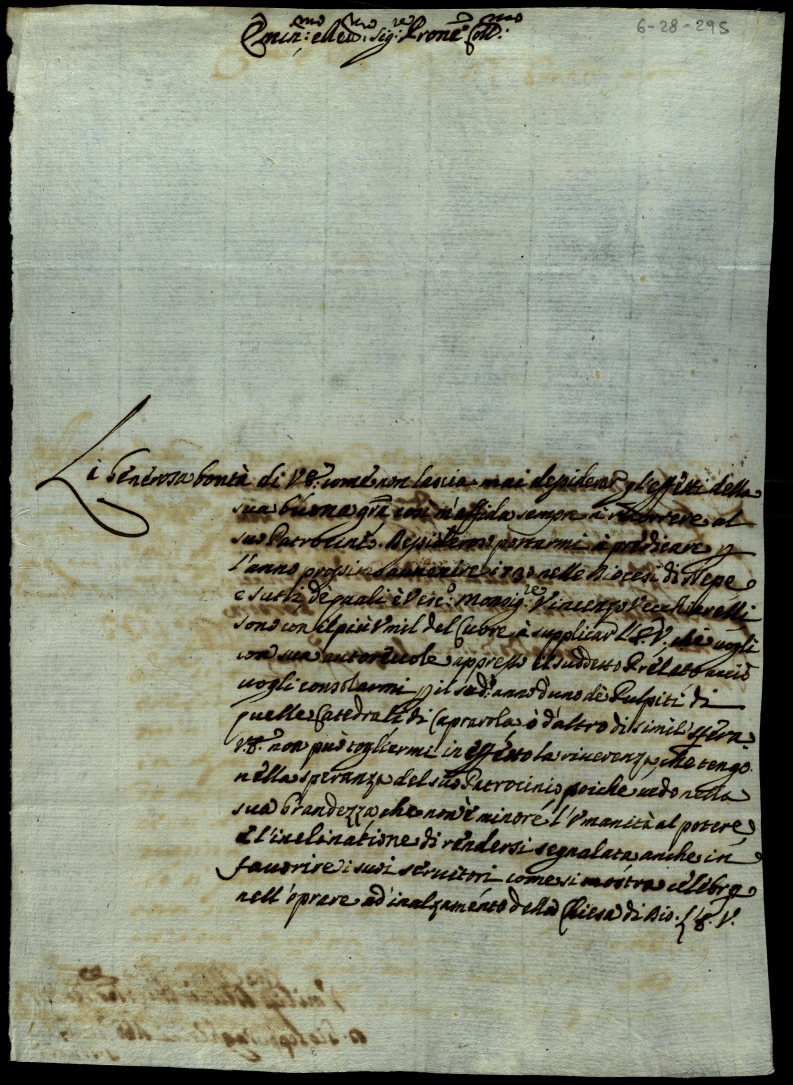 6-28-295
Emin:mo e Reu:mo sig:re Prone Coll:mo
La Generosa bontà di V.E. come non lascia mai desiderar gl'effetti della
sua buona gra così m'affida sempre à ricorrere al
suo Patrocinio. Desidero portarmi à predicare p
l'anno prossimo auuenire 1730 nelle Diocesi di Nepe
e Sutri de quali è Vesc:o Monsig:re Vincenzo Vecchiarelli
sono con il più Vmil del Cuore à supplicar l'E.V., che uogli
con sua autoreuole appresso il suddetto Prelato acciò
uogli consolarmi p il sud:o anno d'uno de Pulpiti di
quelle Catedrali di Caprarola ò d'altro di simil sfera
V.E. non può togliermi in effetto la riuerenza, che tengo
nella speranza del suo Patrocinio, poiche uedo nella
sua Grandezza, che non è minore l'Vmanità al potere,
e l'inclinatione di rendersi segnalata anche in
fauorire i suoi seruitori come si mostra celebre
nell'oprare ad'inalzamento della Chiesa di Dio. L'E.V.